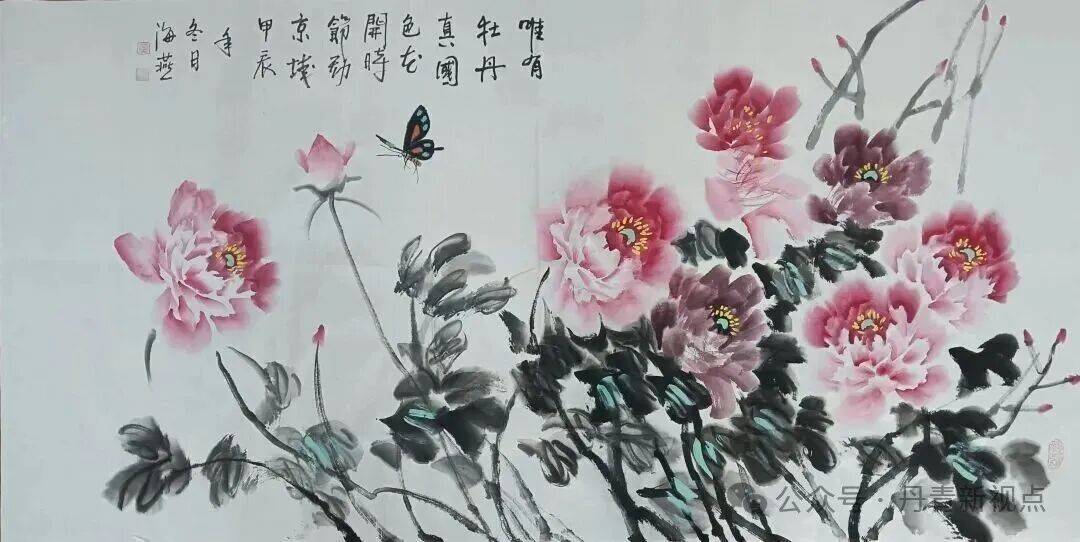 唯有
牡丹
真國
色花
開時
節動
京城
甲辰
年
冬日
海燕
公众号·丹青新视点